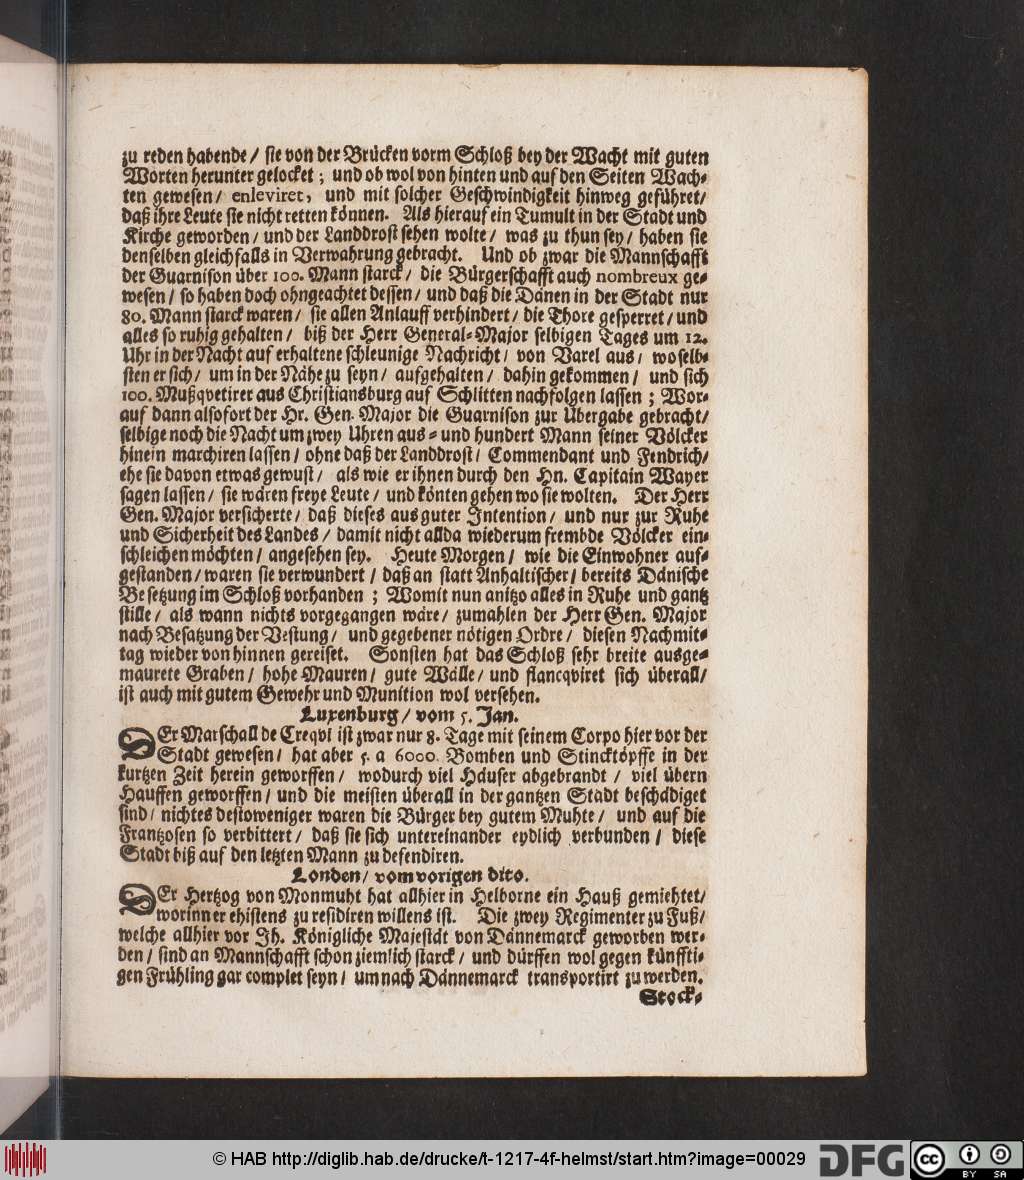 zu reden habende / sie von der Brücken vorm Schloß bey der Wacht mit guten
Worten herunter gelocket ; und ob wol von hinten und auf den Seiten Wach-
ten gewesen / enleviret, und mit solcher Geschwindigkeit hinweg geführet /
daß ihre Leute sie nicht retten können. Als hierauf ein Tumult in der Stadt und
Kirche geworden / und der Landdrost sehen wolte / was zu thun sey / haben sie
denselben gleichfalls in Verwahrung gebracht. Und ob zwar die Mannschafft
der Guarnison über 100. Mann starck / die Bürgerschafft auch nombreux ge-
wesen / so haben doch ohngeachtet dessen / und daß die Dänen in der Stadt nur
80. Mann starck waren / sie allen Anlauff verhindert / die Thore gesperret / und
alles so ruhig gehalten / biß der Herr General-Major selbigen Tages um 12.
Uhr in der Nacht auf erhaltene schleunige Nachricht / von Varel aus / woselb-
sten er sich / um in der Nähe zu seyn / aufgehalten / dahin gekommen / und sich
100. Mußqvetirer aus Christiansburg auf Schlitten nachfolgen lassen ; Wor-
auf dann alsofort der Hr. Gen. Major die Guarnison zur Ubergabe gebracht /
selbige noch die Nacht um zwey Uhren aus- und hundert Mann seiner Völcker
hinein marchiren lassen / ohne daß der Landdrost / Commendant und Fendrich /
ehe sie davon etwas gewust / als wie er ihnen durch den Hn. Capitain Wayer
sagen lassen / sie wären freye Leute / und könten gehen wo sie wolten. Der Herr
Gen. Major versicherte / daß dieses aus guter Intention / und nur zur Ruhe
und Sicherheit des Landes / damit nicht allda wiederum frembde Völcker ein-
schleichen möchten / angesehen sey. Heute Morgen / wie die Einwohner auf-
gestanden / waren sie verwundert / daß an statt Anhaltischer / bereits Dänische
Besetzung im Schloß vorhanden ; Womit nun anitzo alles in Ruhe und gantz
stille / als wann nichts vorgegangen wäre / zumahlen der Herr Gen. Major
nach Besatzung der Vestung / und gegebener nötigen Ordre / diesen Nachmit-
tag wieder von hinnen gereiset. Sonsten hat das Schloß sehr breite ausge-
maurete Graben / hohe Mauren / gute Wälle / und flancqviret sich überall /
ist auch mit gutem Gewehr und Munition wol versehen.
Luxenburg / vom 5. Jan.
DEr Marschall de Creqvi ist zwar nur 8. Tage mit seinem Corpo hier vor der
Stadt gewesen / hat aber 5. a 6000. Bomben und Stincktöpffe in der
kurtzen Zeit herein geworffen / wodurch viel Häuser abgebrandt / viel übern
Hauffen geworffen / und die meisten überall in der gantzen Stadt beschädiget
sind / nichtes destoweniger waren die Bürger bey gutem Muhte / und auf die
Frantzosen so verbittert / daß sie sich untereinander eydlich verbunden / diese
Stadt biß auf den letzten Mann zu defendiren.
Londen / vom vorigen dito.
DEr Hertzog von Monmuht hat allhier in Helborne ein Hauß gemiehtet /
worinn er ehistens zu residiren willens ist. Die zwey Regimenter zu Fuß /
welche allhier vor Ih. Königliche Majestät von Dännemarck geworben wer-
den / sind an Mannschafft schon ziemlich starck / und dürffen wol gegen künffti-
gen Frühling gar complet seyn / um nach Dännemarck transportirt zu werden.
Stock-
© HAB http://diglib.hab.de/drucke/t-1217-4f-helmst/start.htm?image=00029
DFG
cc BY SA